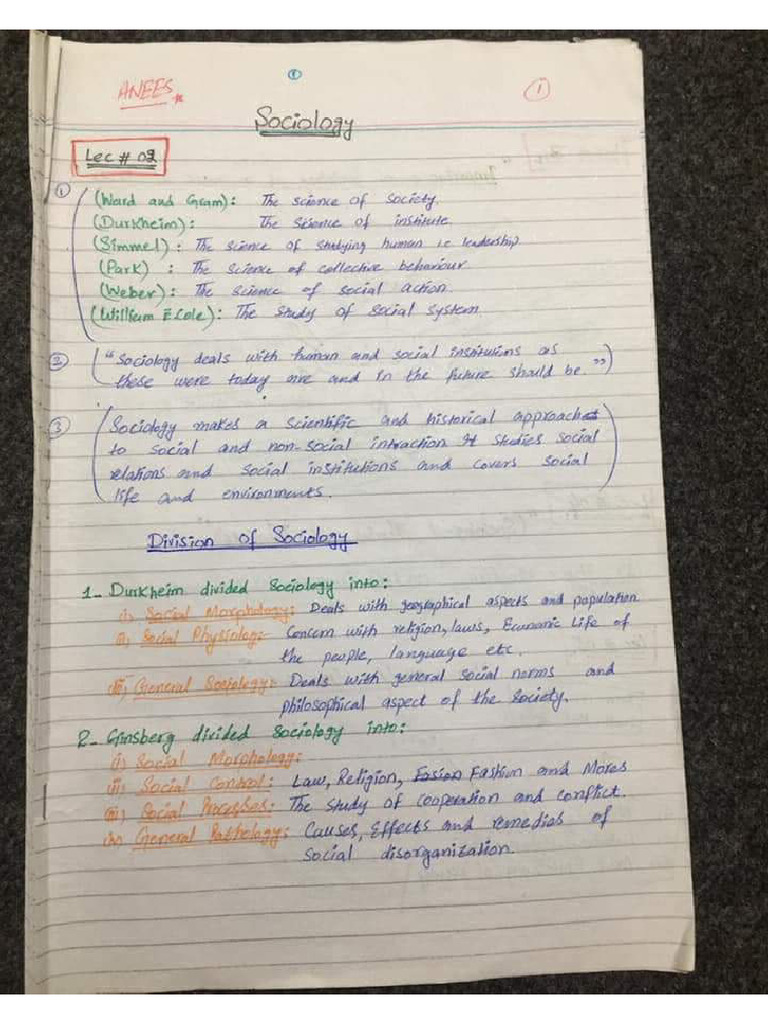 ANEES
1
1
Sociology
Lec # 02
1 (Ward and Gram): The science of Society.
(Durkheim): The Science of institute.
(Simmel): The science of studying human i.e leadership
(Park) : The science of collective behaviour.
(Weber): The science of social action.
(William F Cole): The study of social system.
2 ("Sociology deals with human and social institutions as
these were today are and in the future should be.")
3 (Sociology makes a scientific and historical approached
to social and non-social intraction It studies social
relations and social institutions and covers social
life and environments.)
Division of Sociology
1- Durkheim divided Sociology into:
i) Social Morphology: Deals with geographical aspects and population
ii) Social Physiology:- Concern with religion, laws, Economic Life of
the people, language etc.
iii) General Sociology:- Deals with general social norms and
philosophical aspect of the society.
2- Ginsberg divided Sociology into:
i) Social Morphology:
ii) Social Control: Law, Religion, Fasion Fashion and Mores
iii) Social Processes: The study of cooperation and conflict.
iv) General Pathology: Causes, Effects and remedias of
social disorganization.